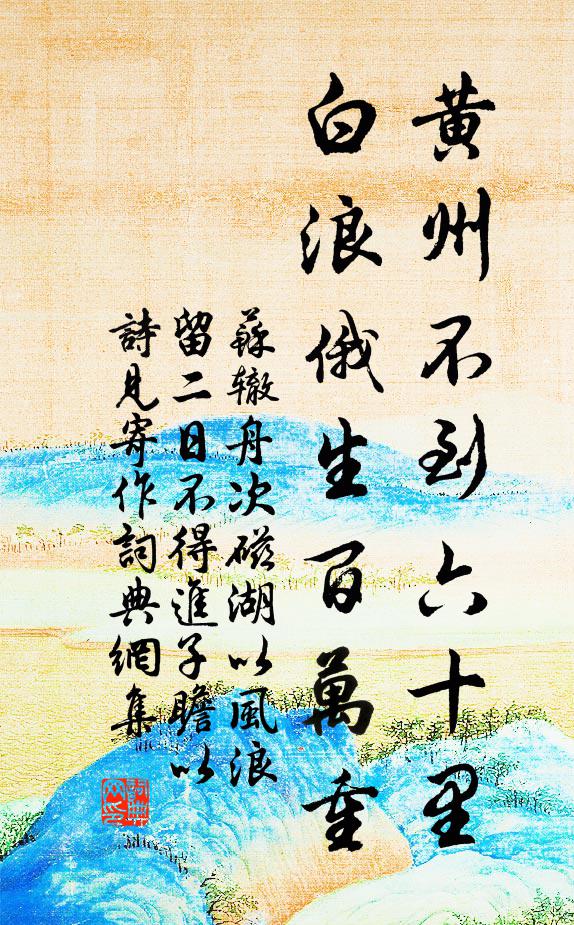 黄州不到六十里
白浪俄生百萬重
蘇辙舟次磁湖以風浪
留二日不得進子瞻以
詩見寄作詞典網集